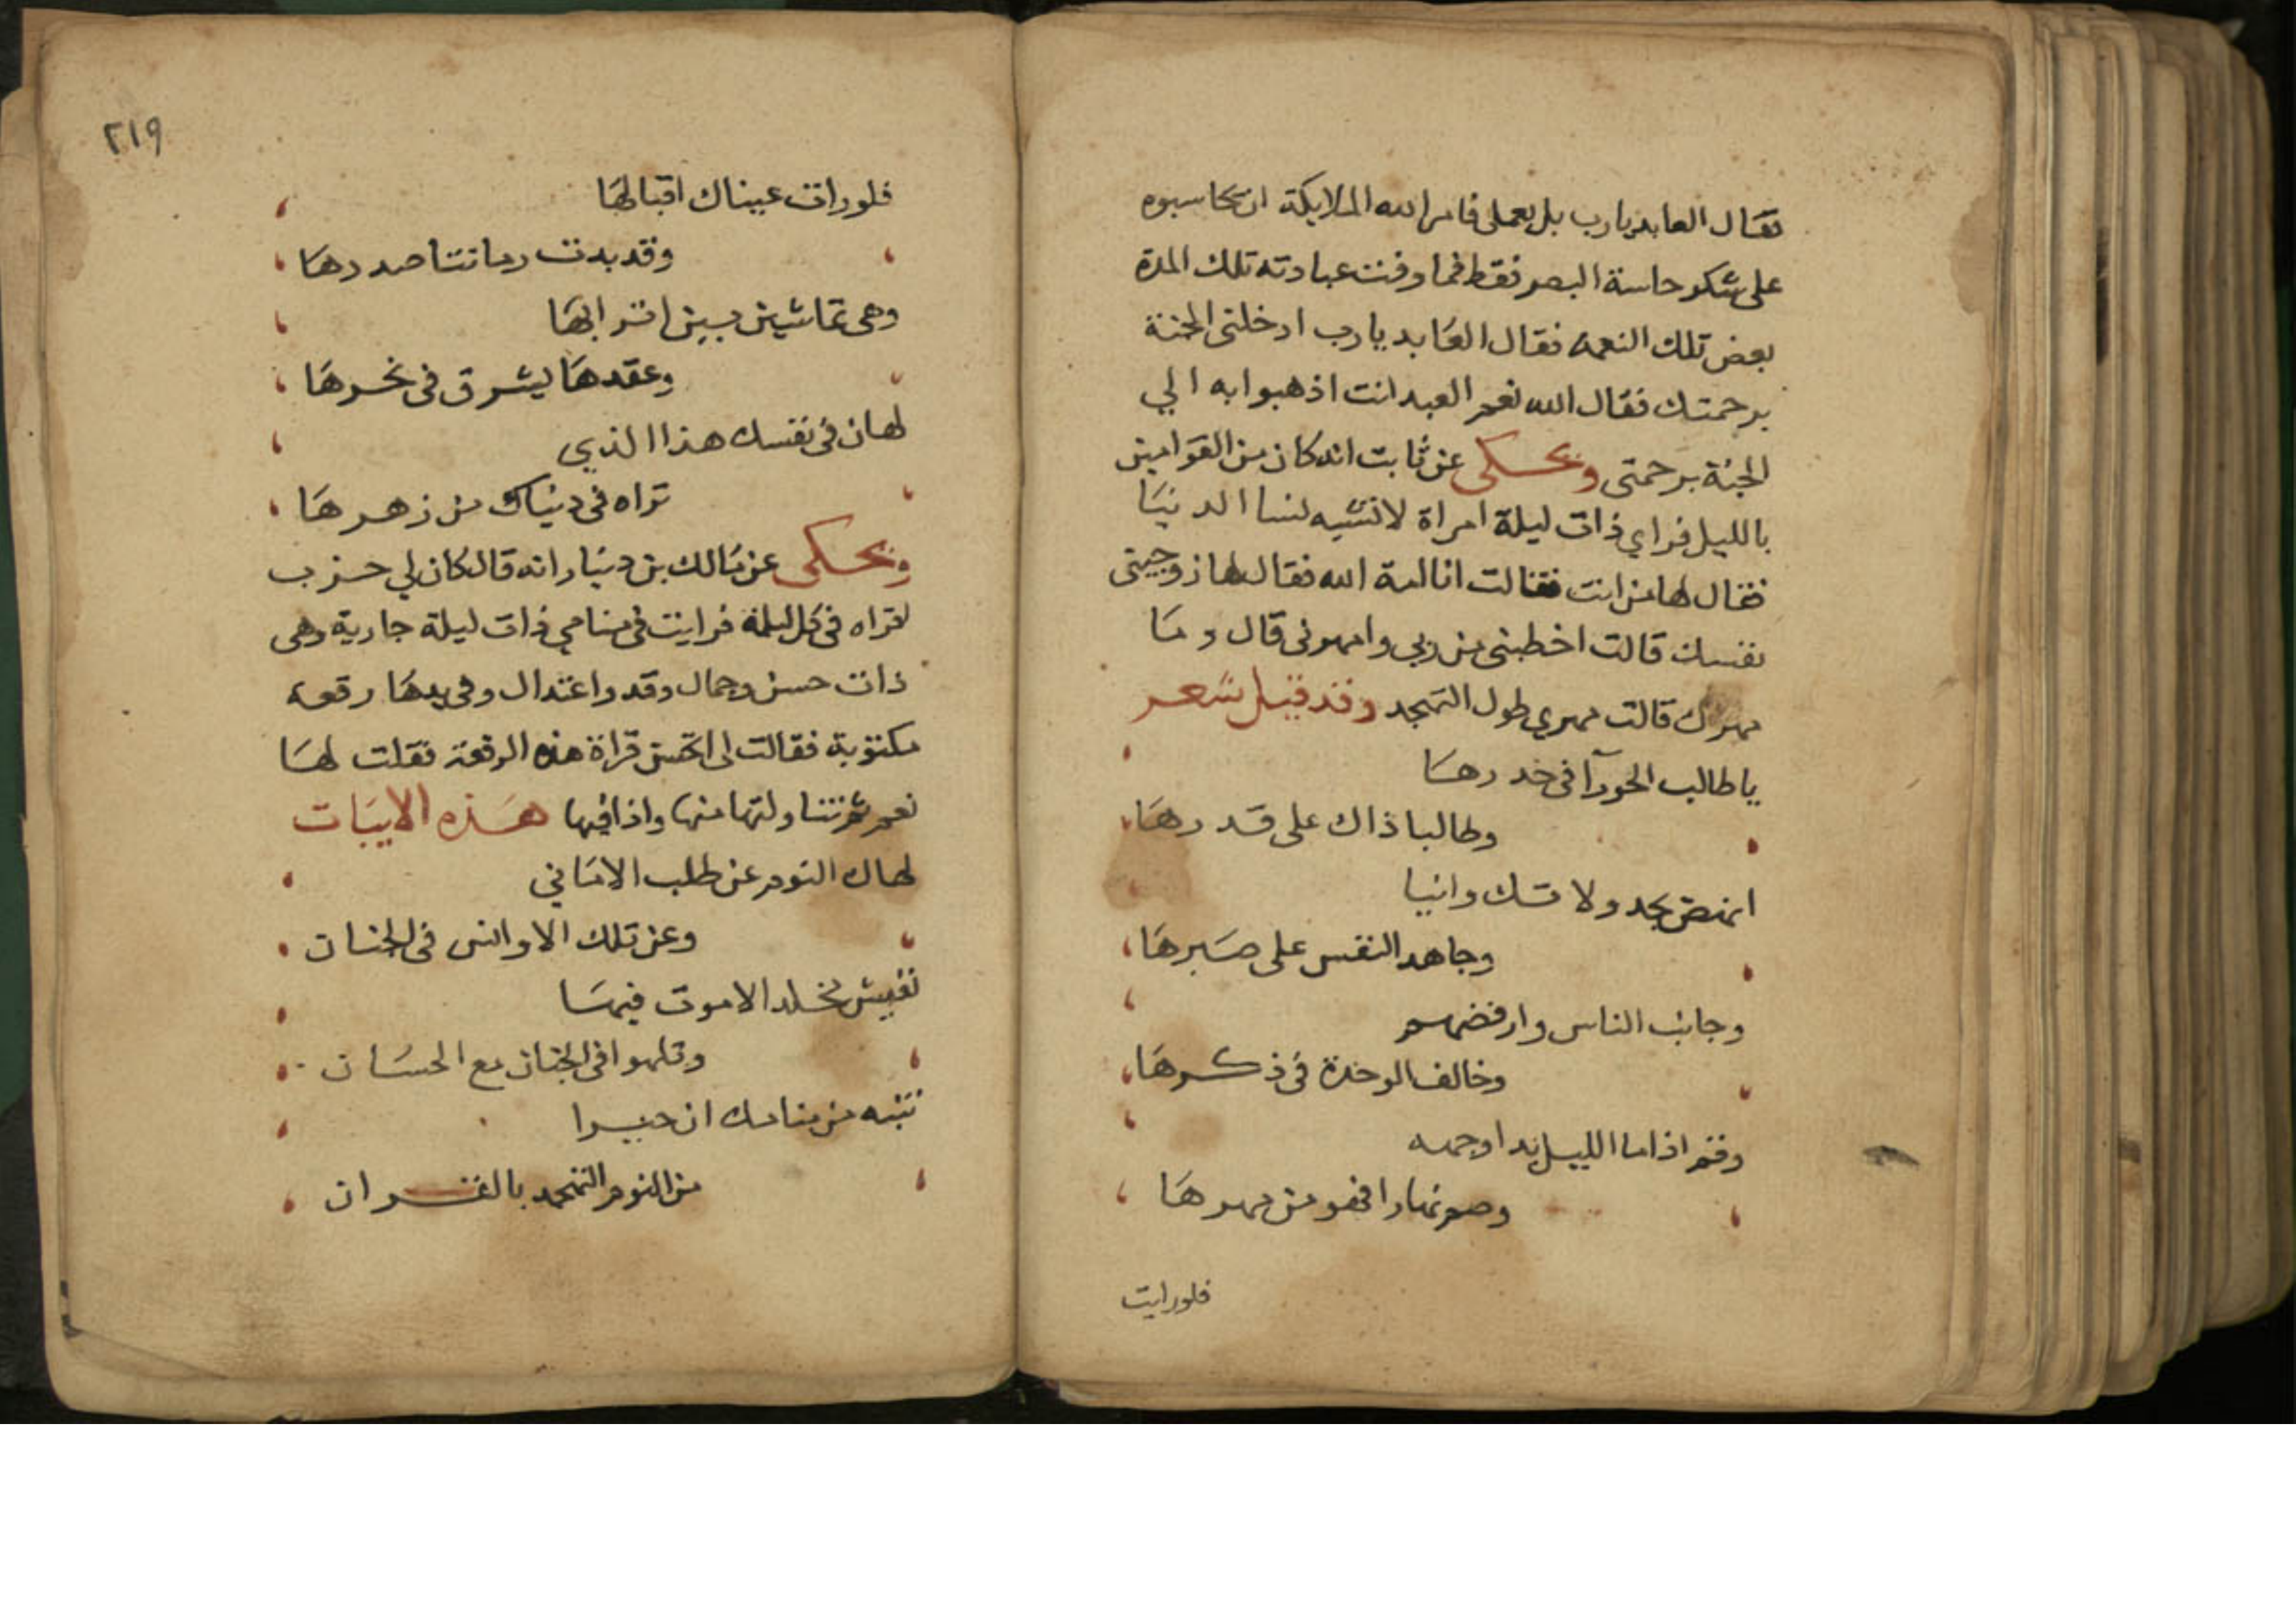 فقال العابد يارب بل بعملى فامر الله الملايكة ان تحاسبوه
على شكر حاسة البصر فقط فما وفت عبادته تلك المدة
بعض تلك النعمة فقال العابد يارب ادخلنى الجنة
برحمتك فقال الله نعم العبد انت اذهبوا به الي
الجنة برحمتى ويحكى عن ثابت انه كان من القوامين
بالليل فراي ذات ليلة امراة لا تشبه لنسا الدنيا
فقال لها من انت فقالت انا امة الله فقال لها زوجينى
نفسك قالت اخطبنى من ربي وامهرنى قال وما
مهرك قالت مهري طول التهجد وقد قيل شعر
يا طالب الحورآ فى خدرها
وطالبا ذاك على قدرها
انهض بجد ولا تك وانيا
وجاهد النفس على صبرها
وجانب الناس وارفضهم
وخالف الوحدة فى ذكرها
وقم اذا ما الليل بدا وجهه
وصم نهارا فهو من مهرها
فلورايت
٢١٩
فلورات عيناك اقبالها
وقد بدت رمانتا صدرها
وهى تماشى بين اترابها
وعقدها يشرق فى نحرها
لهان فى نفسك هذا الذي
تراه فى دنياك من زهرها
ويحكى عن مالك بن دينار انه قال كان لي حزب
اقراه فى كل ليلة فرايت فى منامي ذات ليلة جارية وهى
ذات حسن وجمال وقد واعتدال وفى يدها رقعة
مكتوبة فقالت لى اتحسن قراة هذه الرقعة فقلت لها
نعم ثم تناولتها منها واذا فيها هذه الابيات
لهاك النوم عن طلب الامانى
وعن تلك الاوانس فى الجنان
تعيش مخلدا لاموت فيها
وتلهوا فى الجنان مع الحسان
تنبه من منامك ان خيرا
من النوم التهجد بالقران